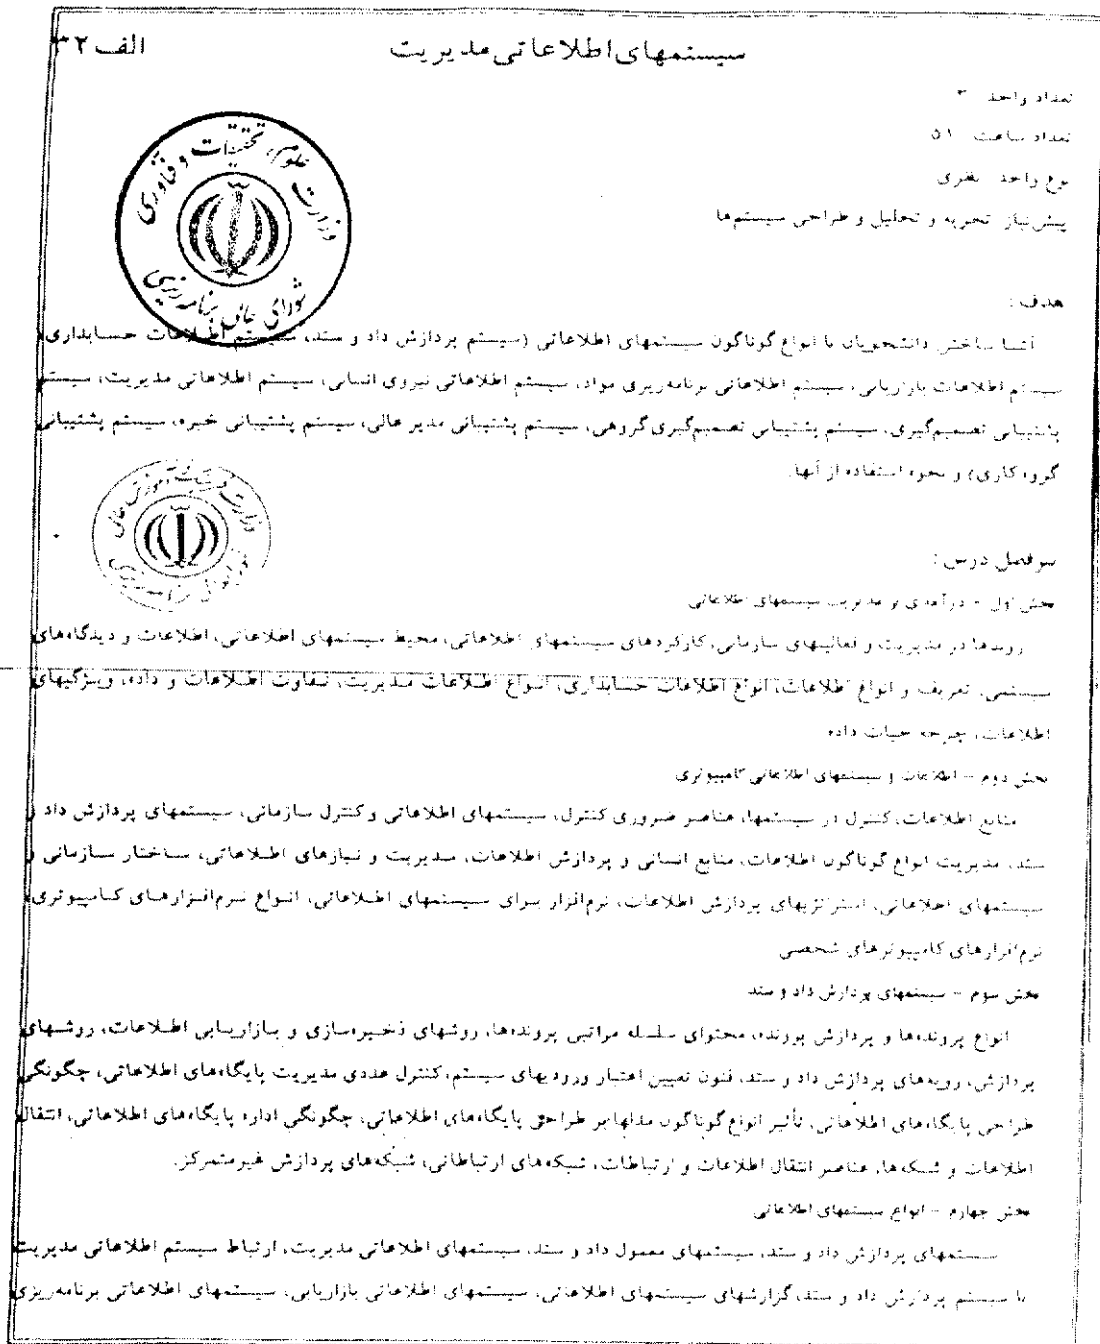 الف ۳۲
سیستمهای اطلاعاتی مدیریت
تعداد واحد ۳
تعداد ساعت ۵۱
نوع واحد نظری
پیش‌نیاز تجزیه و تحلیل و طراحی سیستم‌ها
وزارت علوم، تحقیقات و فناوری
شورای عالی برنامه ریزی
هدف :
آشنا ساختن دانشجویان با انواع گوناگون سیستمهای اطلاعاتی (سیستم پردازش داد و ستد، سیستم اطلاعات حسابداری،
سیستم اطلاعات بازاریابی، سیستم اطلاعاتی برنامه‌ریزی مواد، سیستم اطلاعاتی نیروی انسانی، سیستم اطلاعاتی مدیریت، سیستم
پشتیبانی تصمیم‌گیری، سیستم پشتیبانی تصمیم‌گیری گروهی، سیستم پشتیبانی مدیر عالی، سیستم پشتیبانی خبره، سیستم پشتیبانی
گروه کاری) و نحوه استفاده از آنها.
وزارت فرهنگ و آموزش عالی
شورای عالی برنامه ریزی
سرفصل درس :
بخش اول - درآمدی بر مدیریت سیستمهای اطلاعاتی
روندها در مدیریت و فعالیتهای سازمانی، کارکردهای سیستمهای اطلاعاتی، محیط سیستمهای اطلاعاتی، اطلاعات و دیدگاه‌های
سیستمی، تعریف و انواع اطلاعات، انواع اطلاعات حسابداری، انواع اطلاعات مدیریت، تفاوت اطلاعات و داده، ویژگیهای
اطلاعات، چرخه حیات داده
بخش دوم - اطلاعات و سیستمهای اطلاعاتی کامپیوتری
منابع اطلاعات، کنترل در سیستمها، عناصر ضروری کنترل، سیستمهای اطلاعاتی و کنترل سازمانی، سیستمهای پردازش داد و
ستد، مدیریت انواع گوناگون اطلاعات، منابع انسانی و پردازش اطلاعات، مدیریت و نیازهای اطلاعاتی، ساختار سازمانی و
سیستمهای اطلاعاتی، استراتژیهای پردازش اطلاعات، نرم‌افزار برای سیستمهای اطلاعاتی، انواع نرم‌افزارهای کامپیوتری،
نرم‌افزارهای کامپیوترهای شخصی
بخش سوم - سیستمهای پردازش داد و ستد
انواع پرونده‌ها و پردازش پرونده، محتوای سلسله مراتبی پرونده‌ها، روشهای ذخیره‌سازی و بازاریابی اطلاعات، روشهای
پردازش، رویه‌های پردازش داد و ستد، فنون تعیین اعتبار ورودیهای سیستم، کنترل عددی مدیریت پایگاه‌های اطلاعاتی، چگونگی
طراحی پایگاه‌های اطلاعاتی، تأثیر انواع گوناگون مدلها بر طراحی پایگاه‌های اطلاعاتی، چگونگی اداره پایگاه‌های اطلاعاتی، انتقال
اطلاعات و شبکه‌ها، عناصر انتقال اطلاعات و ارتباطات، شبکه‌های ارتباطاتی، شبکه‌های پردازش غیرمتمرکز.
بخش چهارم - انواع سیستمهای اطلاعاتی
سیستمهای پردازش داد و ستد، سیستمهای معمول داد و ستد، سیستمهای اطلاعاتی مدیریت، ارتباط سیستم اطلاعاتی مدیریت
با سیستم پردازش داد و ستد، گزارشهای سیستمهای اطلاعاتی، سیستمهای اطلاعاتی بازاریابی، سیستمهای اطلاعاتی برنامه‌ریزی